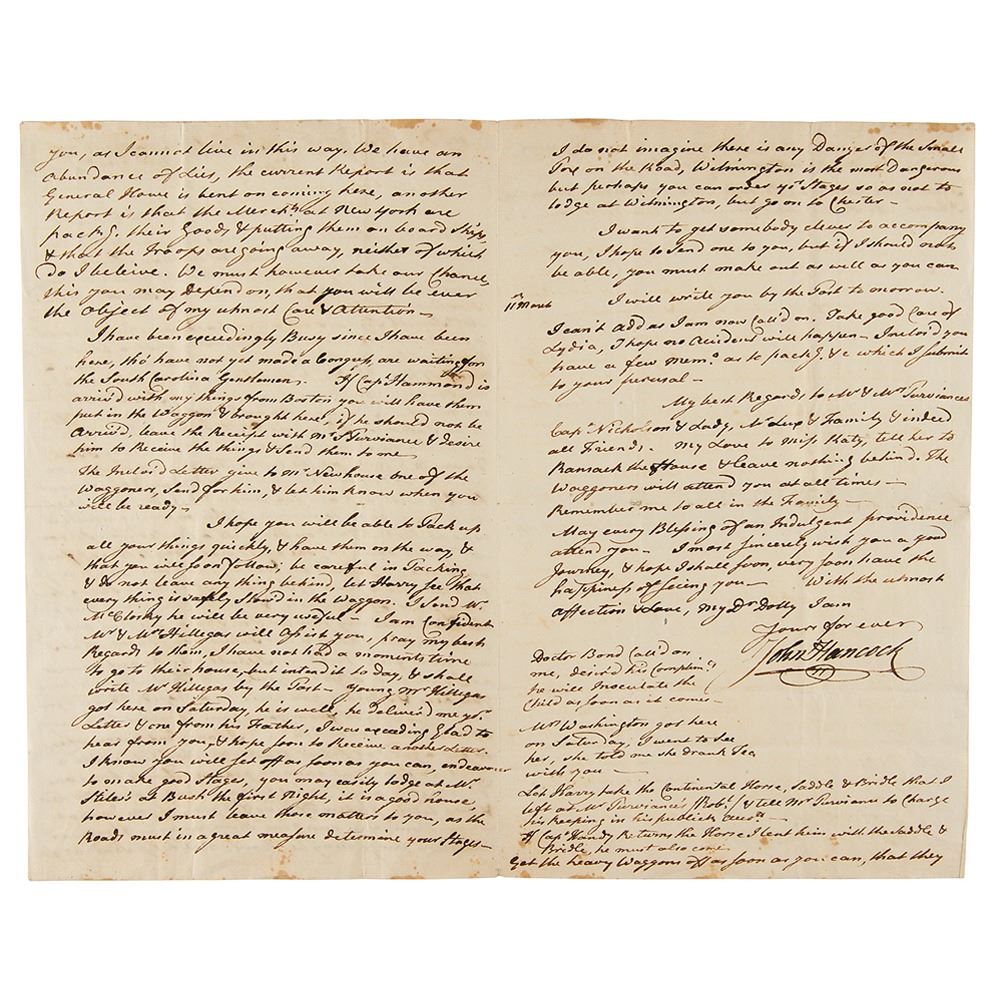 you, as I cannot live in this way. We have an
abundance of Lies, the current Report is that
General Howe is bent on coming here, another
Report is that the Merchts. at New York are
packg. their Goods & putting them on board Ships,
& that the Troops are going away, neither of which
do I beleive. We must however take our Chance,
this you may depend on, that you will be ever
the Object of my utmost Care & Attention—
I have been exceedingly Busy since I have been
here, tho' have not yet made a Congress, are waiting for
the South Carolina Gentlemen. If Capt. Hammond is
arriv'd with my things from Boston you will have them
put in the Waggon & brought here, if he should not be
Arriv'd, leave the Receipt with Mr. Purviance & desire
him to Receive the things & Send them to me
The Inclos'd Letter give to Mr. Newhouse one of the
Waggoners, Send for him, & let him know when you
will be ready—
I hope you will be able to Pack up
all your things quickly, & have them on the way, &
that you will soon follow; be careful in Packing
& do not leave any thing behind, let Harry see that
every thing is safely Stow'd in the Waggon. I Send Mr.
McClosky he will be very useful— I am Confident
Mr. & Mrs. Hillegas will assist you, pray my best
Regards to them, I have not had a moments time
to go to their house, but intend it to day, & shall
write Mr. Hillegas by the Post— Young Mr. Hillegas
got here on Saturday, he is well, he deliver'd me yr.
Letter & one from his Father, I was exceeding Glad to
hear from you, & hope soon to Receive another Letter.
I know you will set off as soon as you can, endeavor
to make good Stages, you may easily lodge at Mr.
Stile's at Bush the first Night, it is a good house,
however I must leave those matters to you, as the
Roads must in a great measure determine your Stages—
I do not imagine there is any Danger of the Small
Pox on the Road, Wilmington is the most Dangerous
but perhaps you can order yr. Stages so as not to
lodge at Wilmington, but go on to Chester—
I want to get somebody clever to accompany
you, I hope to Send one to you, but if I should not
be able, you must make out as well as you can
I will write you by the Post to morrow.
11th March
I can't add as I am now Call'd on. Take good Care of
Lydia, I hope no Accident will happen— Inclos'd you
have a few Memo. as to packg. &c which I submit
to your perusal—
My best Regards to Mr. & Mrs. Purviances
Capt. Nicholson & Lady, Mr. Lux & Family & indeed
all Friends, My Love to Miss Katy, tell her to
Ransack the House & leave nothing behind. The
Waggoners will attend you at all times—
Remember me to all in the Family—
May every Blessing of an Indulgent providence
attend you— I most sincerely wish you a good
Journey, & hope I shall soon, very soon have the
happiness of seeing you— With the utmost
affection & Love, My Dr. Dolly I am
Yours for ever
John Hancock
Doctor Bond Call'd on
me, desir'd his Complimts.
he will Inoculate the
Child as soon as it comes—
Mrs. Washington got here
on Saturday, I went to see
her, she told me she drank Tea
with you—
Let Harry take the Continental Horse, Saddle & Bridle that I
left at Mr. Purviance's (Robt.) & tell Mr. Purviance to Charge
his Keeping in his publick Accots.
If Capt. Hardy Returns the Horse I lent him with the Saddle &
Bridle, he must also come
Get the heavy Waggons off as soon as you can, that they